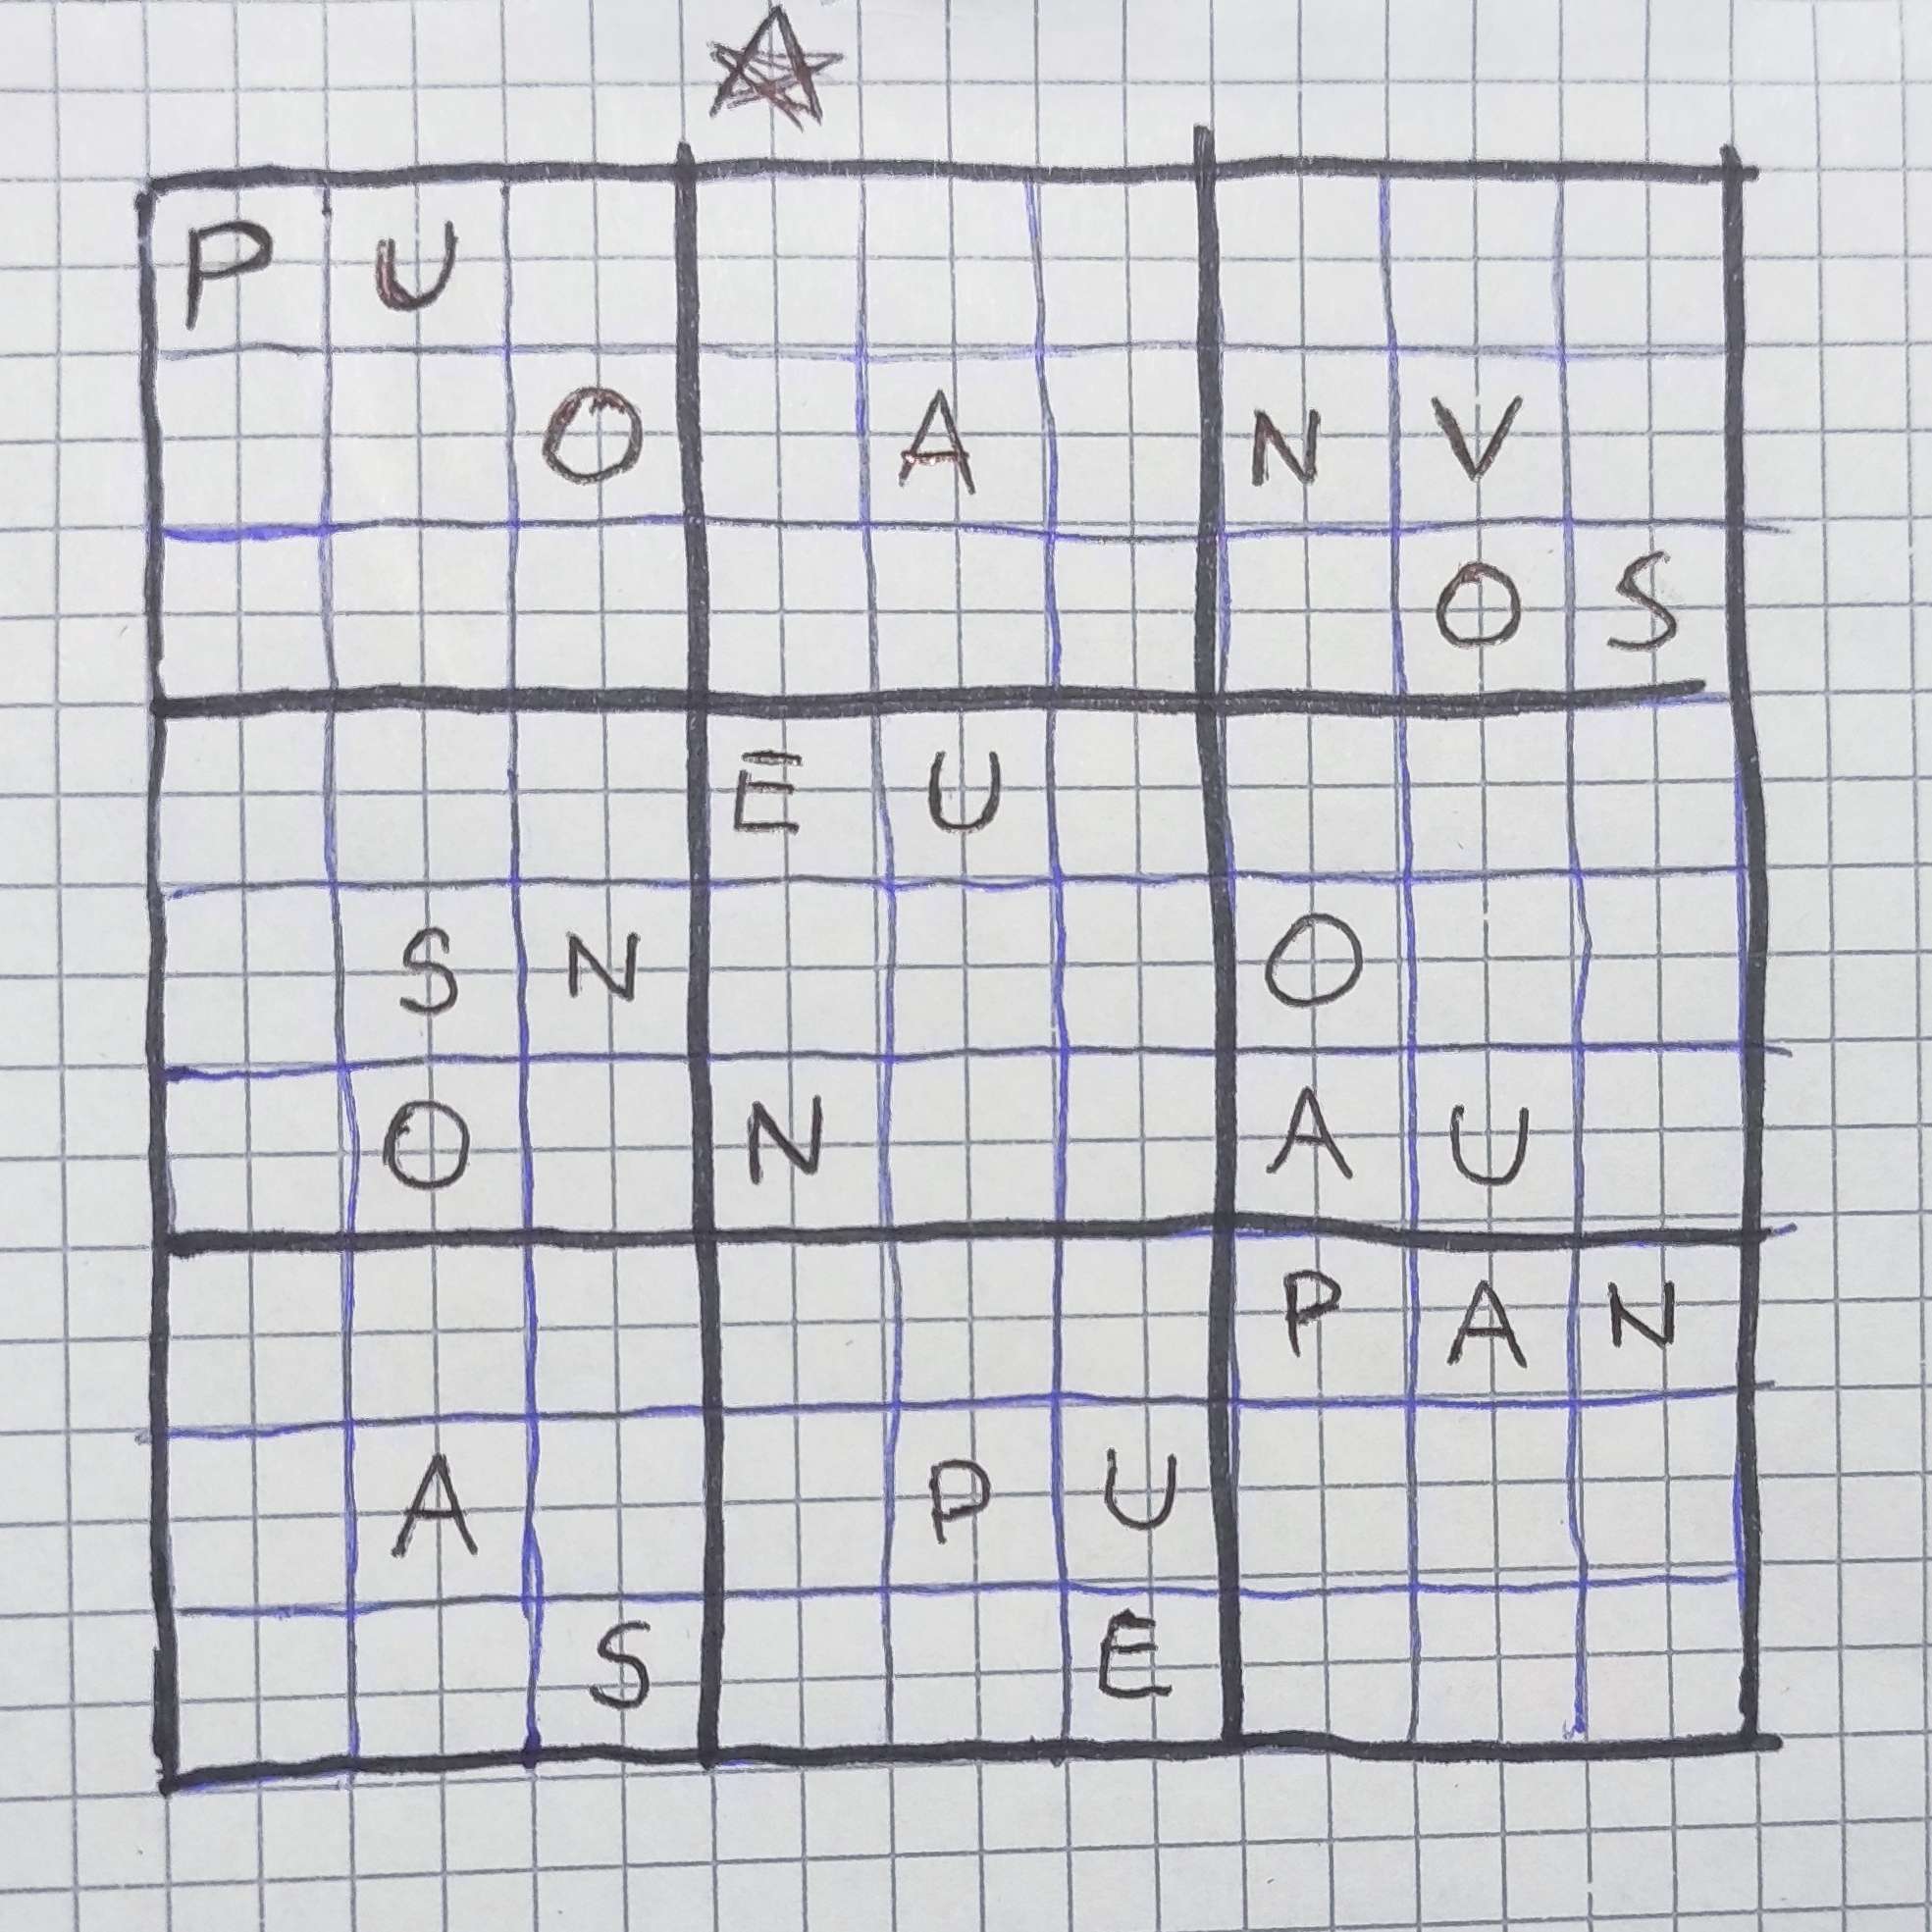 P U
O A N V
O S
E U
S N O
O N A U
P A N
A P U
S E